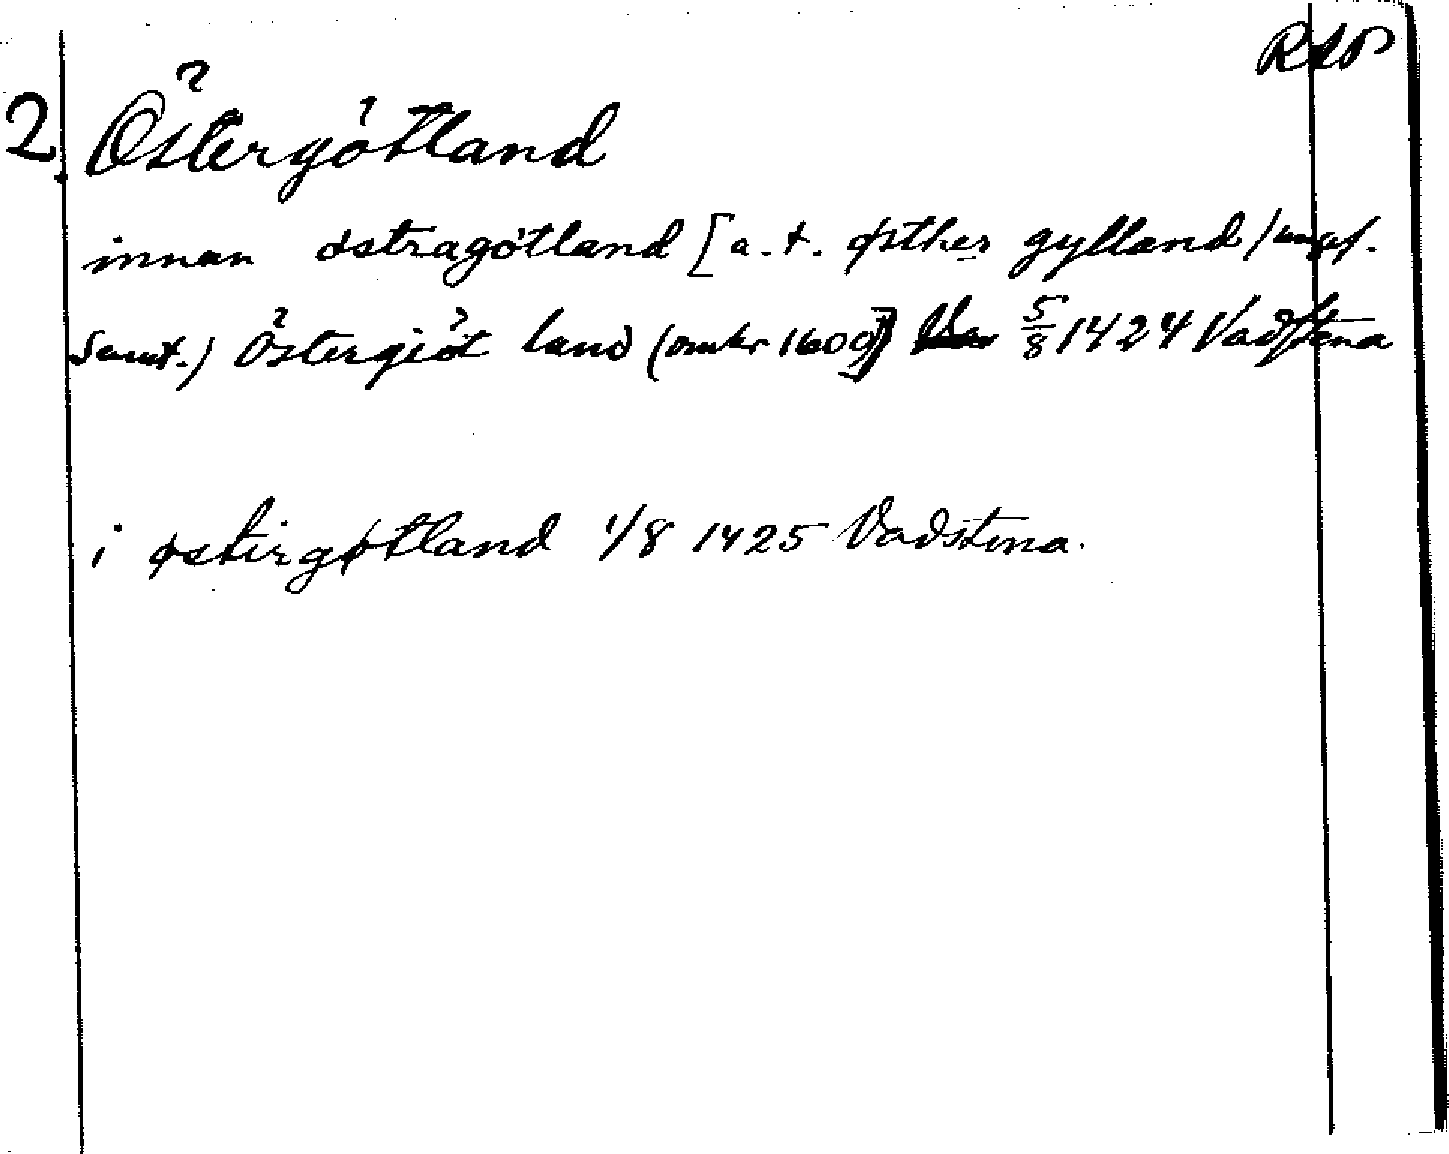 RAP
2. Östergötland
innan östragötland [a. t. østher gylland (ungef.
samt.) Östergiöt land (omkr 1600)] 5/8 1424 Vadstena
i østirgøtland 1/8 1425 Vadstena.